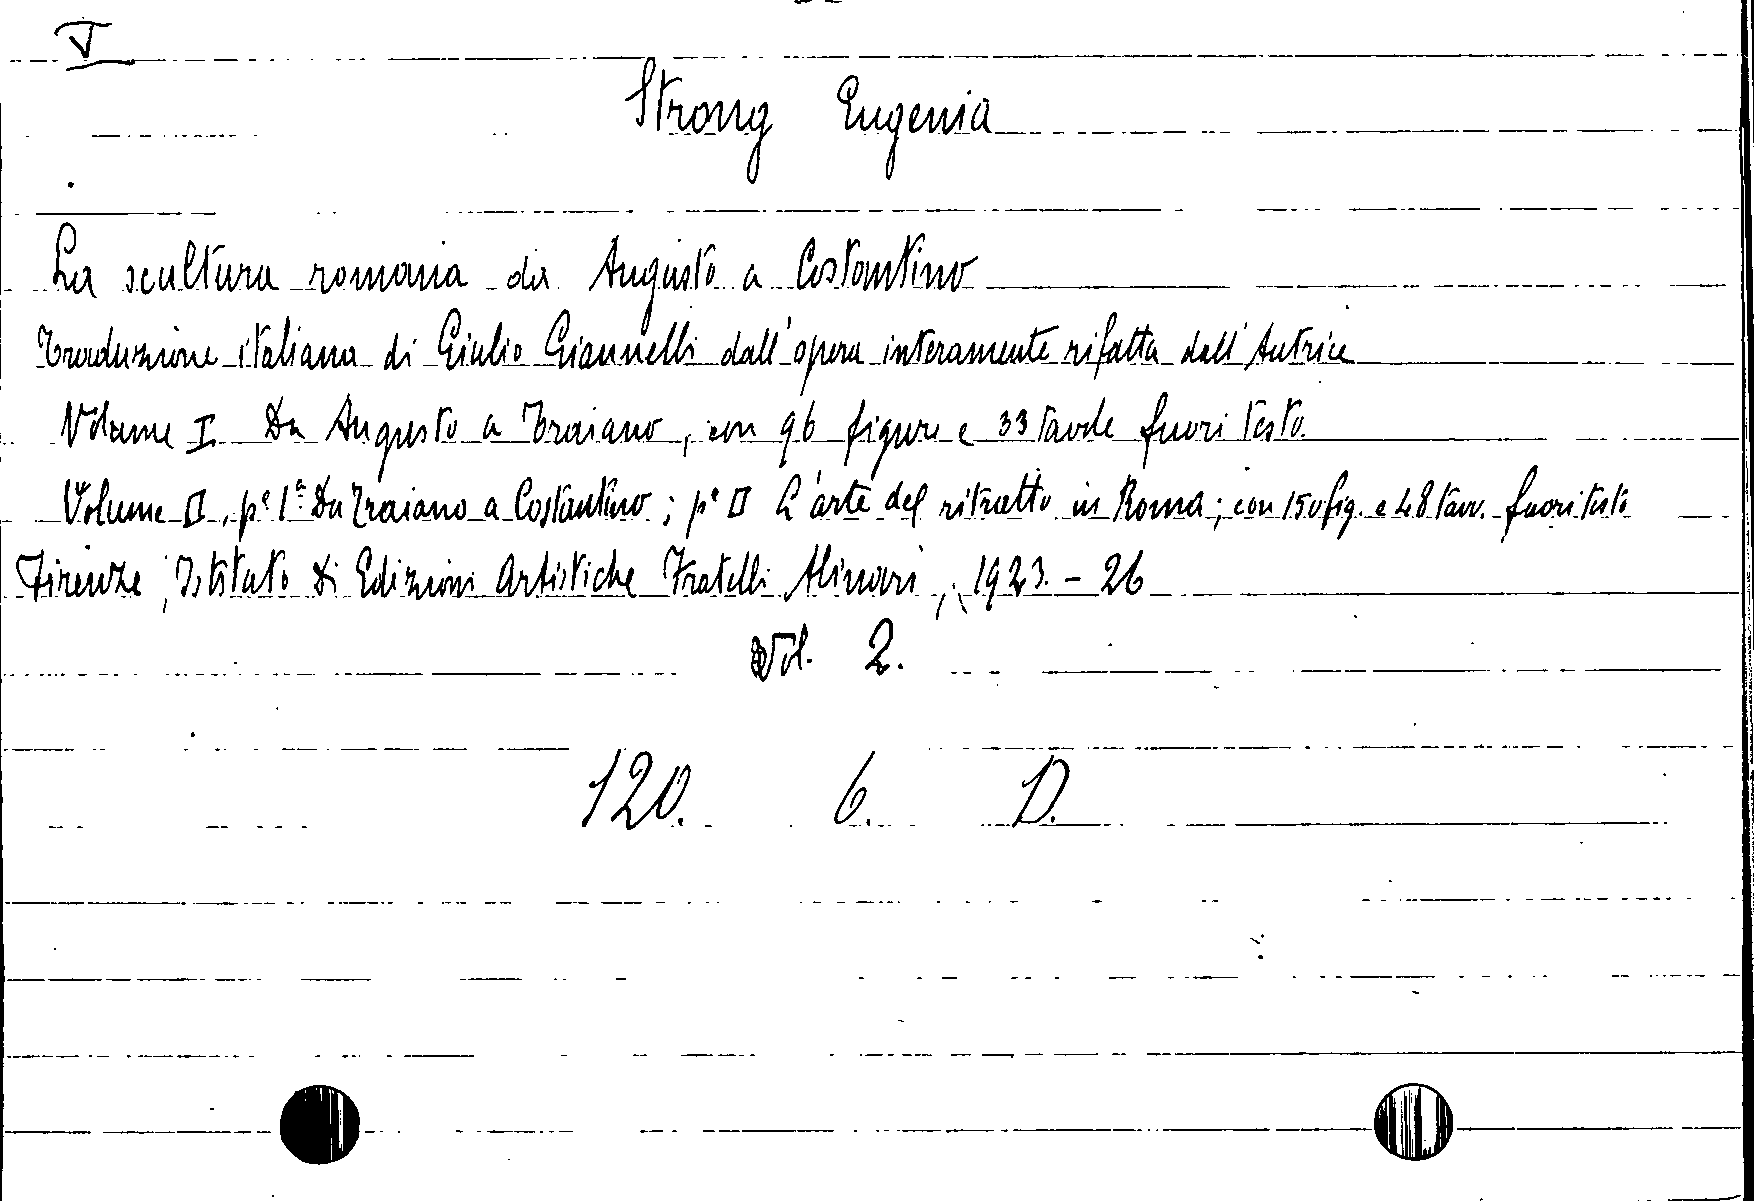 V
Strong Eugenia
La scultura romana da Augusto a Costantino
Traduzione italiana di Giulio Giannelli dall'opera interamente rifatta dall'Autrice
Volume I. Da Augusto a Traiano, con 96 figure e 33 tavole fuori testo.
Volume II, p.e 1.a Da Traiano a Costantino; p.e II L'arte del ritratto in Roma; con 150 fig. e 48 tavv. fuori testo
Firenze, Istituto di Edizioni Artistiche Fratelli Alinari, 1923.-26
Vol. 2.
120. 6. D.